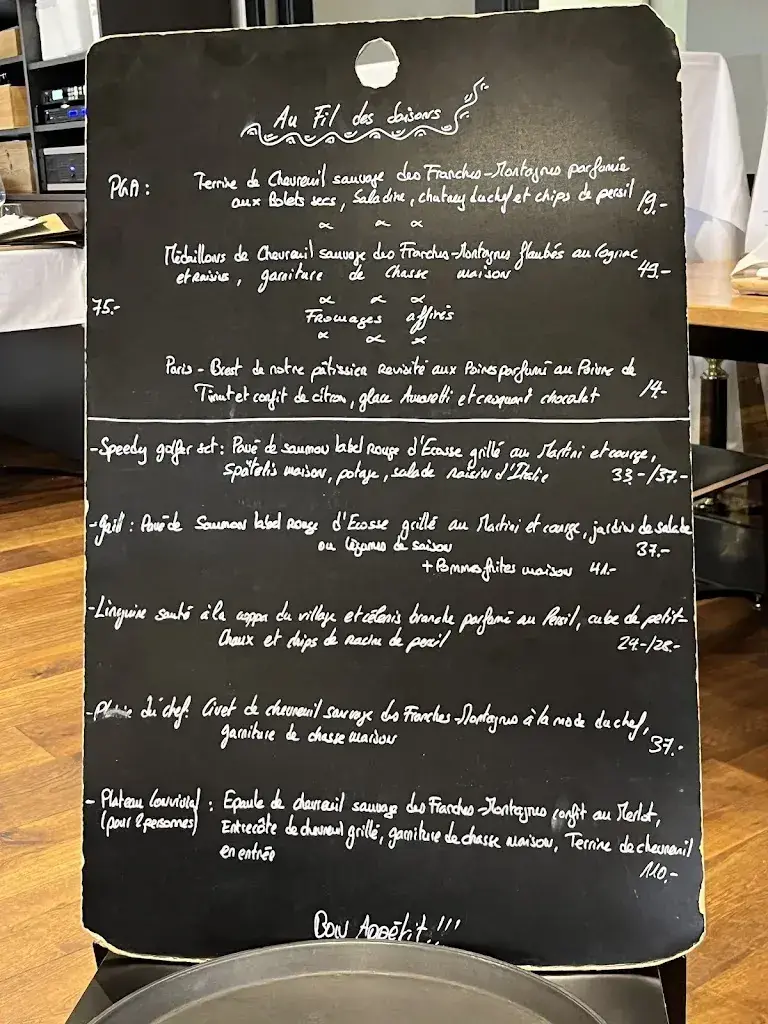 Au Fil des Saisons
PGA : Terrine de Chevreuil sauvage des Franches-Montagnes parfumée
aux Bolets secs, Saladine, chutney du chef et chips de persil 19.-
Médaillons de Chevreuil sauvage des Franches-Montagnes flambés au Cognac
et raisins, garniture de Chasse maison 49.-
75.-
Fromages affinés
Paris-Brest de notre pâtissier Revisité aux Poires parfumé au Poivre de
Timut et confit de citron, glace Amaretti et croquant chocolat 14.-
- Speedy golfer set : Pavé de saumon label Rouge d'Ecosse grillé au Martini et courge,
Spätzlis maison, potage, salade raisin d'Italie 33.-/37.-
- Grill : Pavé de Saumon label Rouge d'Ecosse grillé au Martini et courge, jardin de salade
ou légumes de saison 37.-
+ Pommes frites maison 41.-
- Linguine sauté à la du village et céleris branche parfumé au Persil, cube de petit-
Chaux et chips de racine de persil 24.-/28.-
- du chef: Civet de chevreuil sauvage des Franches-Montagnes à la mode du chef,
garniture de chasse maison 37.-
- Plateau Convivial : Epaule de chevreuil sauvage des Franches-Montagnes confit au Merlot,
(pour 2 personnes) Entrecôte de chevreuil grillé, garniture de chasse maison, Terrine de chevreuil
en entrée 110.-
Bon Appétit !!!